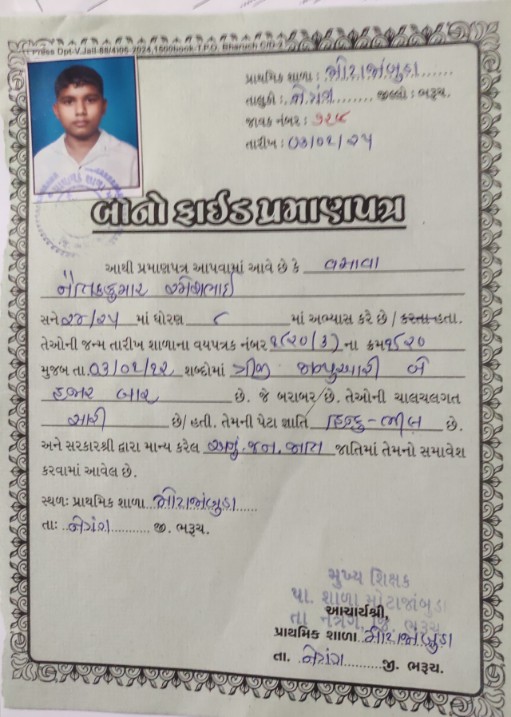 Press Dpt-V.Jail-88/4106-2024,1500book T.P.O. Bharuch C/D-2
પ્રાથમિક શાળા : મોટાજાંબુડા......
તાલુકો : નેત્રંગ........ જીલ્લો : ભરૂચ.
જાવક નંબર : ૭૨૮
તારીખ : ૦૩/૦૨/૨૫
બોનોફાઈડ પ્રમાણપત્ર
આથી પ્રમાણપત્ર આપવામાં આવે છે કે વસાવા
નૈતિકકુમાર રમેશભાઈ
સને ૨૪/૨૫ માં ધોરણ ૮ માં અભ્યાસ કરે છે / કરતા હતા.
તેઓની જન્મ તારીખ શાળાના વયપત્રક નંબર ૧૮૨૦(૩) ના ક્રમ ૧૮૨૦
મુજબ તા. ૦૩/૦૧/૧૨ શબ્દોમાં ત્રીજી જાન્યુઆરી બે
હજાર બાર છે. જે બરાબર છે. તેઓની ચાલચલગત
સારી છે/ હતી. તેમની પેટા જ્ઞાતિ હિન્દુ-ભીલ છે.
અને સરકારશ્રી દ્વારા માન્ય કરેલ અનુ.જન.જાતિ જાતિમાં તેમનો સમાવેશ
કરવામાં આવેલ છે.
સ્થળ: પ્રાથમિક શાળા...મોટાજાંબુડા......
તા: ..નેત્રંગ........... જી. ભરૂચ.
મુખ્ય શિક્ષક
પ્રા. શાળા મોટાજાંબુડા
તા. નેત્રંગ, જિ. ભરૂચ
આચાર્યશ્રી,
પ્રાથમિક શાળા મોટાજાંબુડા
તા. નેત્રંગ..........જી. ભરૂચ.